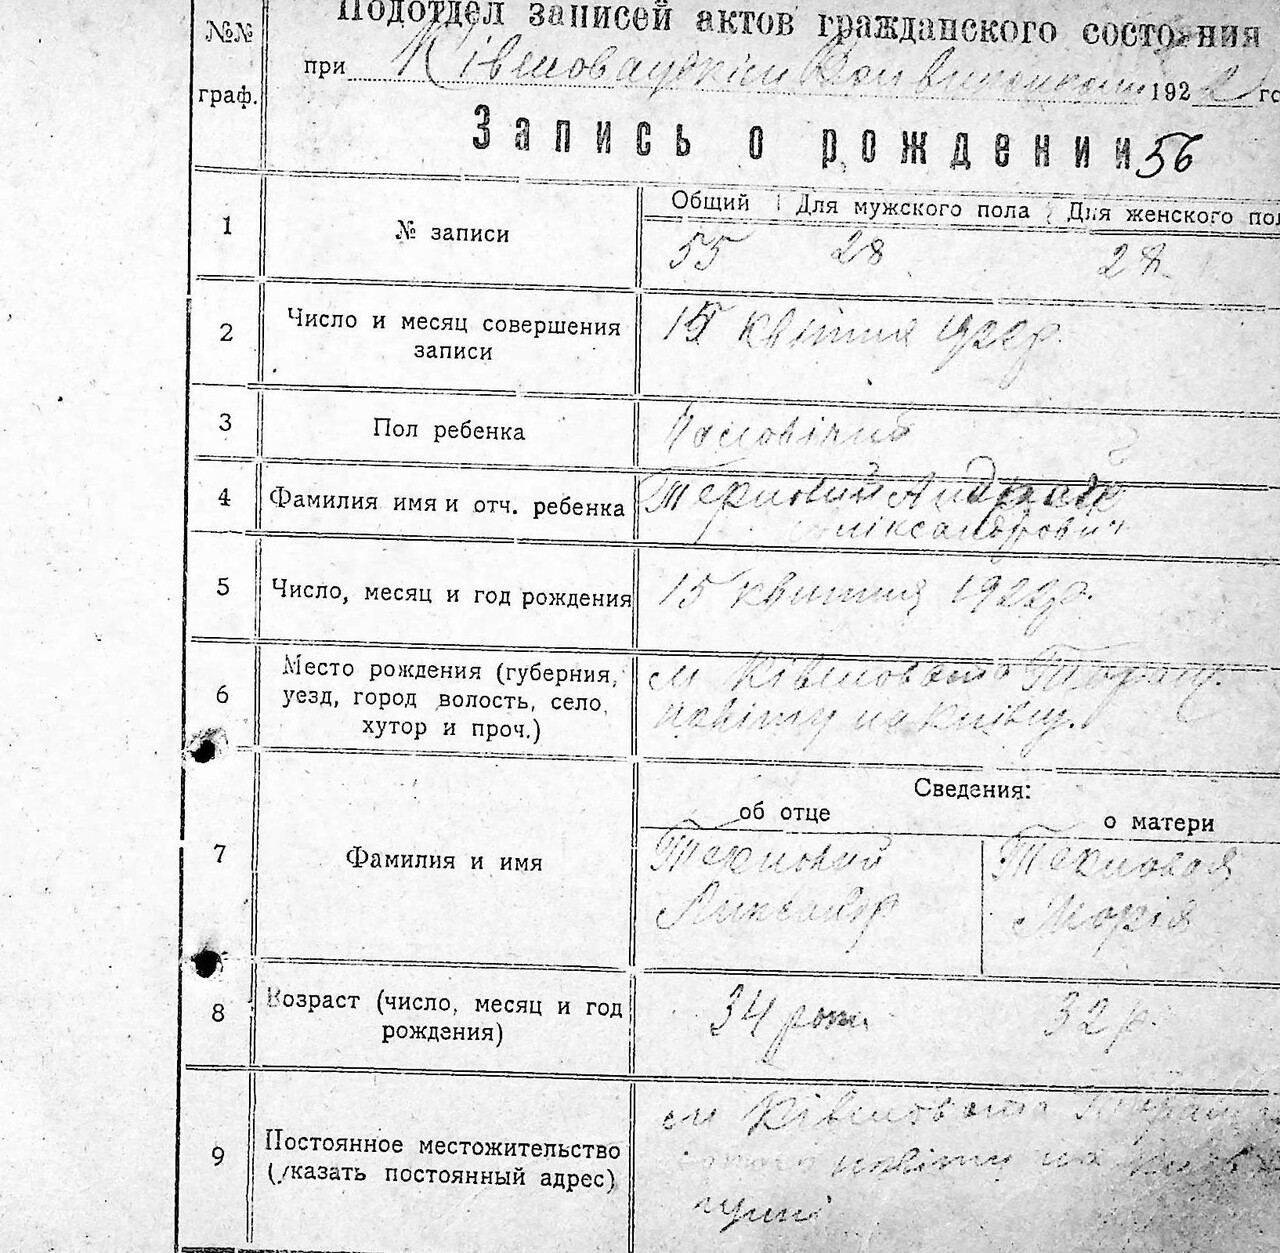 Подотдел записей актов гражданского состояния
№№
граф.
при Ківшоватскім Вол виконкомі 1922 го
Запись о рождении 56
1
№ записи
Общий Для мужского пола Для женского пол
55 28 28
2
Число и месяц совершения
записи
15 квітня 1922р.
3
Пол ребенка
Чоловічий
4
Фамилия имя и отч. ребенка
Терновий
Олександрович
5
Число, месяц и год рождения
15 квітня 1922р.
6
Место рождения (губерния,
уезд, город волость, село,
хутор и проч.)
м Ківшовата
повіту на
Сведения:
об отце
о матери
7
Фамилия и имя
Терновий
Терновая
Марія
8
Возраст (число, месяц и год
рождения)
34 роки
32 р.
9
Постоянное местожительство
(указать постоянный адрес)
м Ківшовата
повіту на